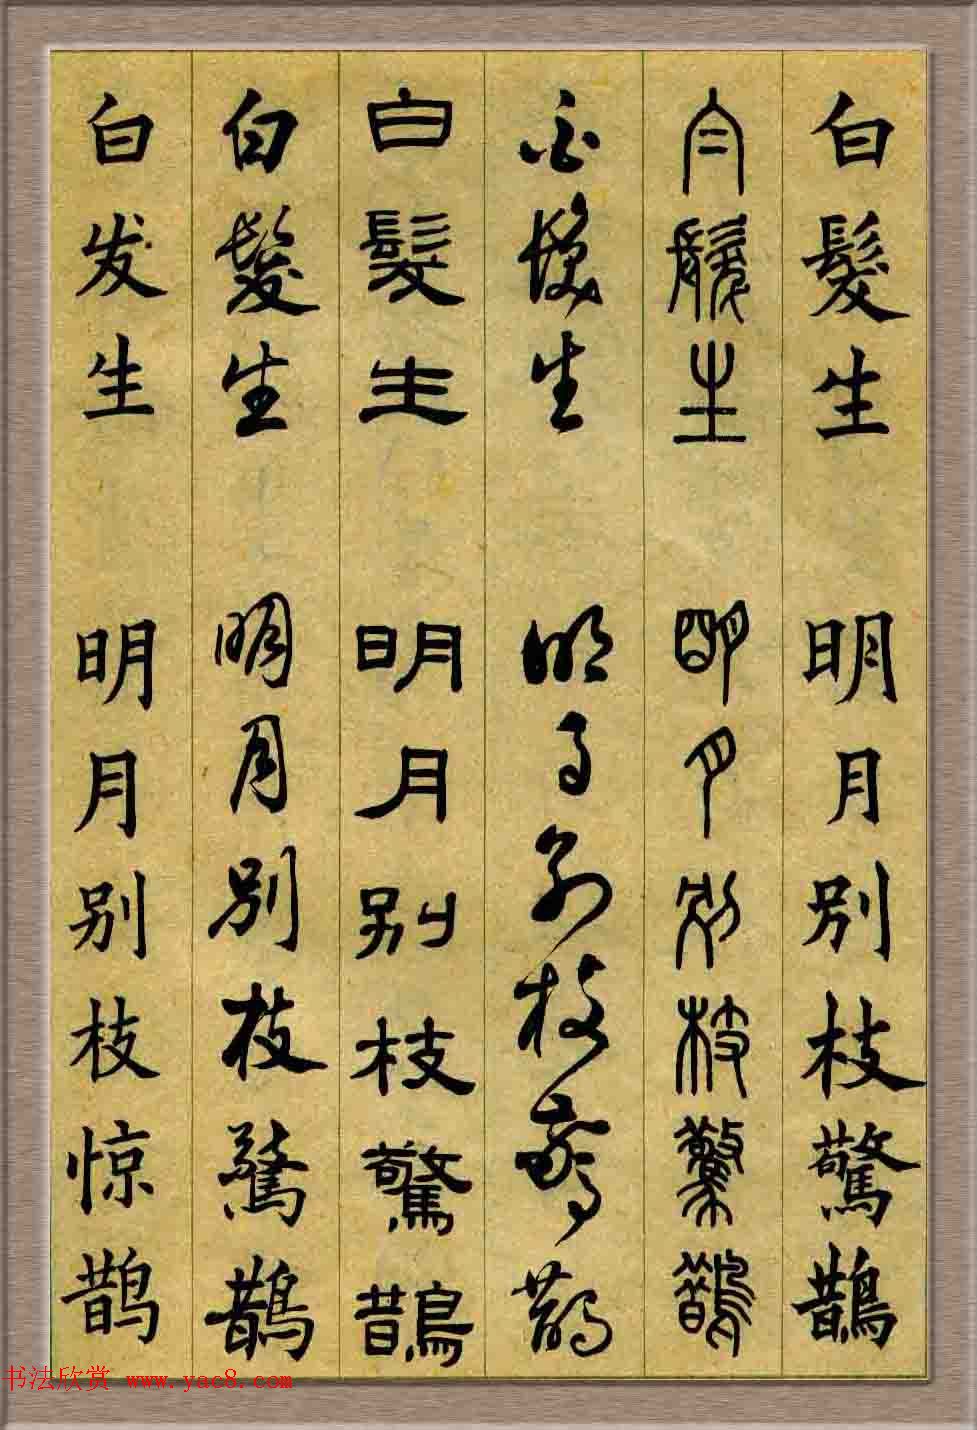 白髮生 明月別枝驚鵲
白髮生 明月別枝驚鵲
白髮生 明月別枝驚鵲
白髮生 明月别枝驚鵲
白髮生 明月別枝驚鵲
白发生 明月别枝惊鹊
书法欣赏 www.yac8.com